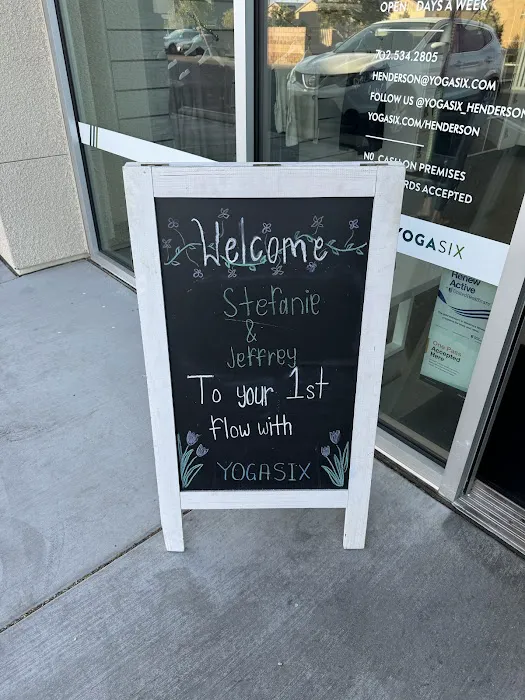 OPEN DAYS A WEEK
702.534.2805
HENDERSON@YOGASIX.COM
FOLLOW US @YOGASIX_HENDERSON
YOGASIX.COM/HENDERSON
NO CASH ON PREMISES
ACCEPTED
YOGASIX
Renew
Active
One Pass
Accepted
Here
Welcome
Stefanie
&
Jeffrey
To your 1st
Flow with
YOGASIX